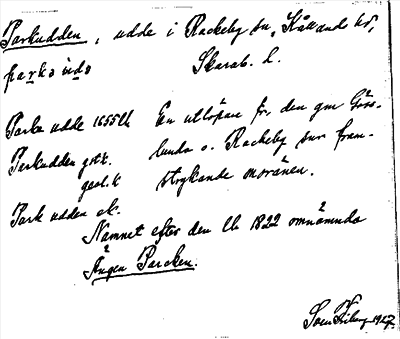 Parkudden, udde i Rackeby sn, Kålland hd,
parkɷ ùdɷ Skarab. l.
Parke udde 1655 Lk En utlöpare fr. den gm Göss-
Parkudden gstk. lunda o. Rackeby snr fram-
geol. k strykande moränen.
Park udden ek.
Namnet efter den Lk 1822 omnämnda
Ängen Parcken.
Sven Friberg 1927.